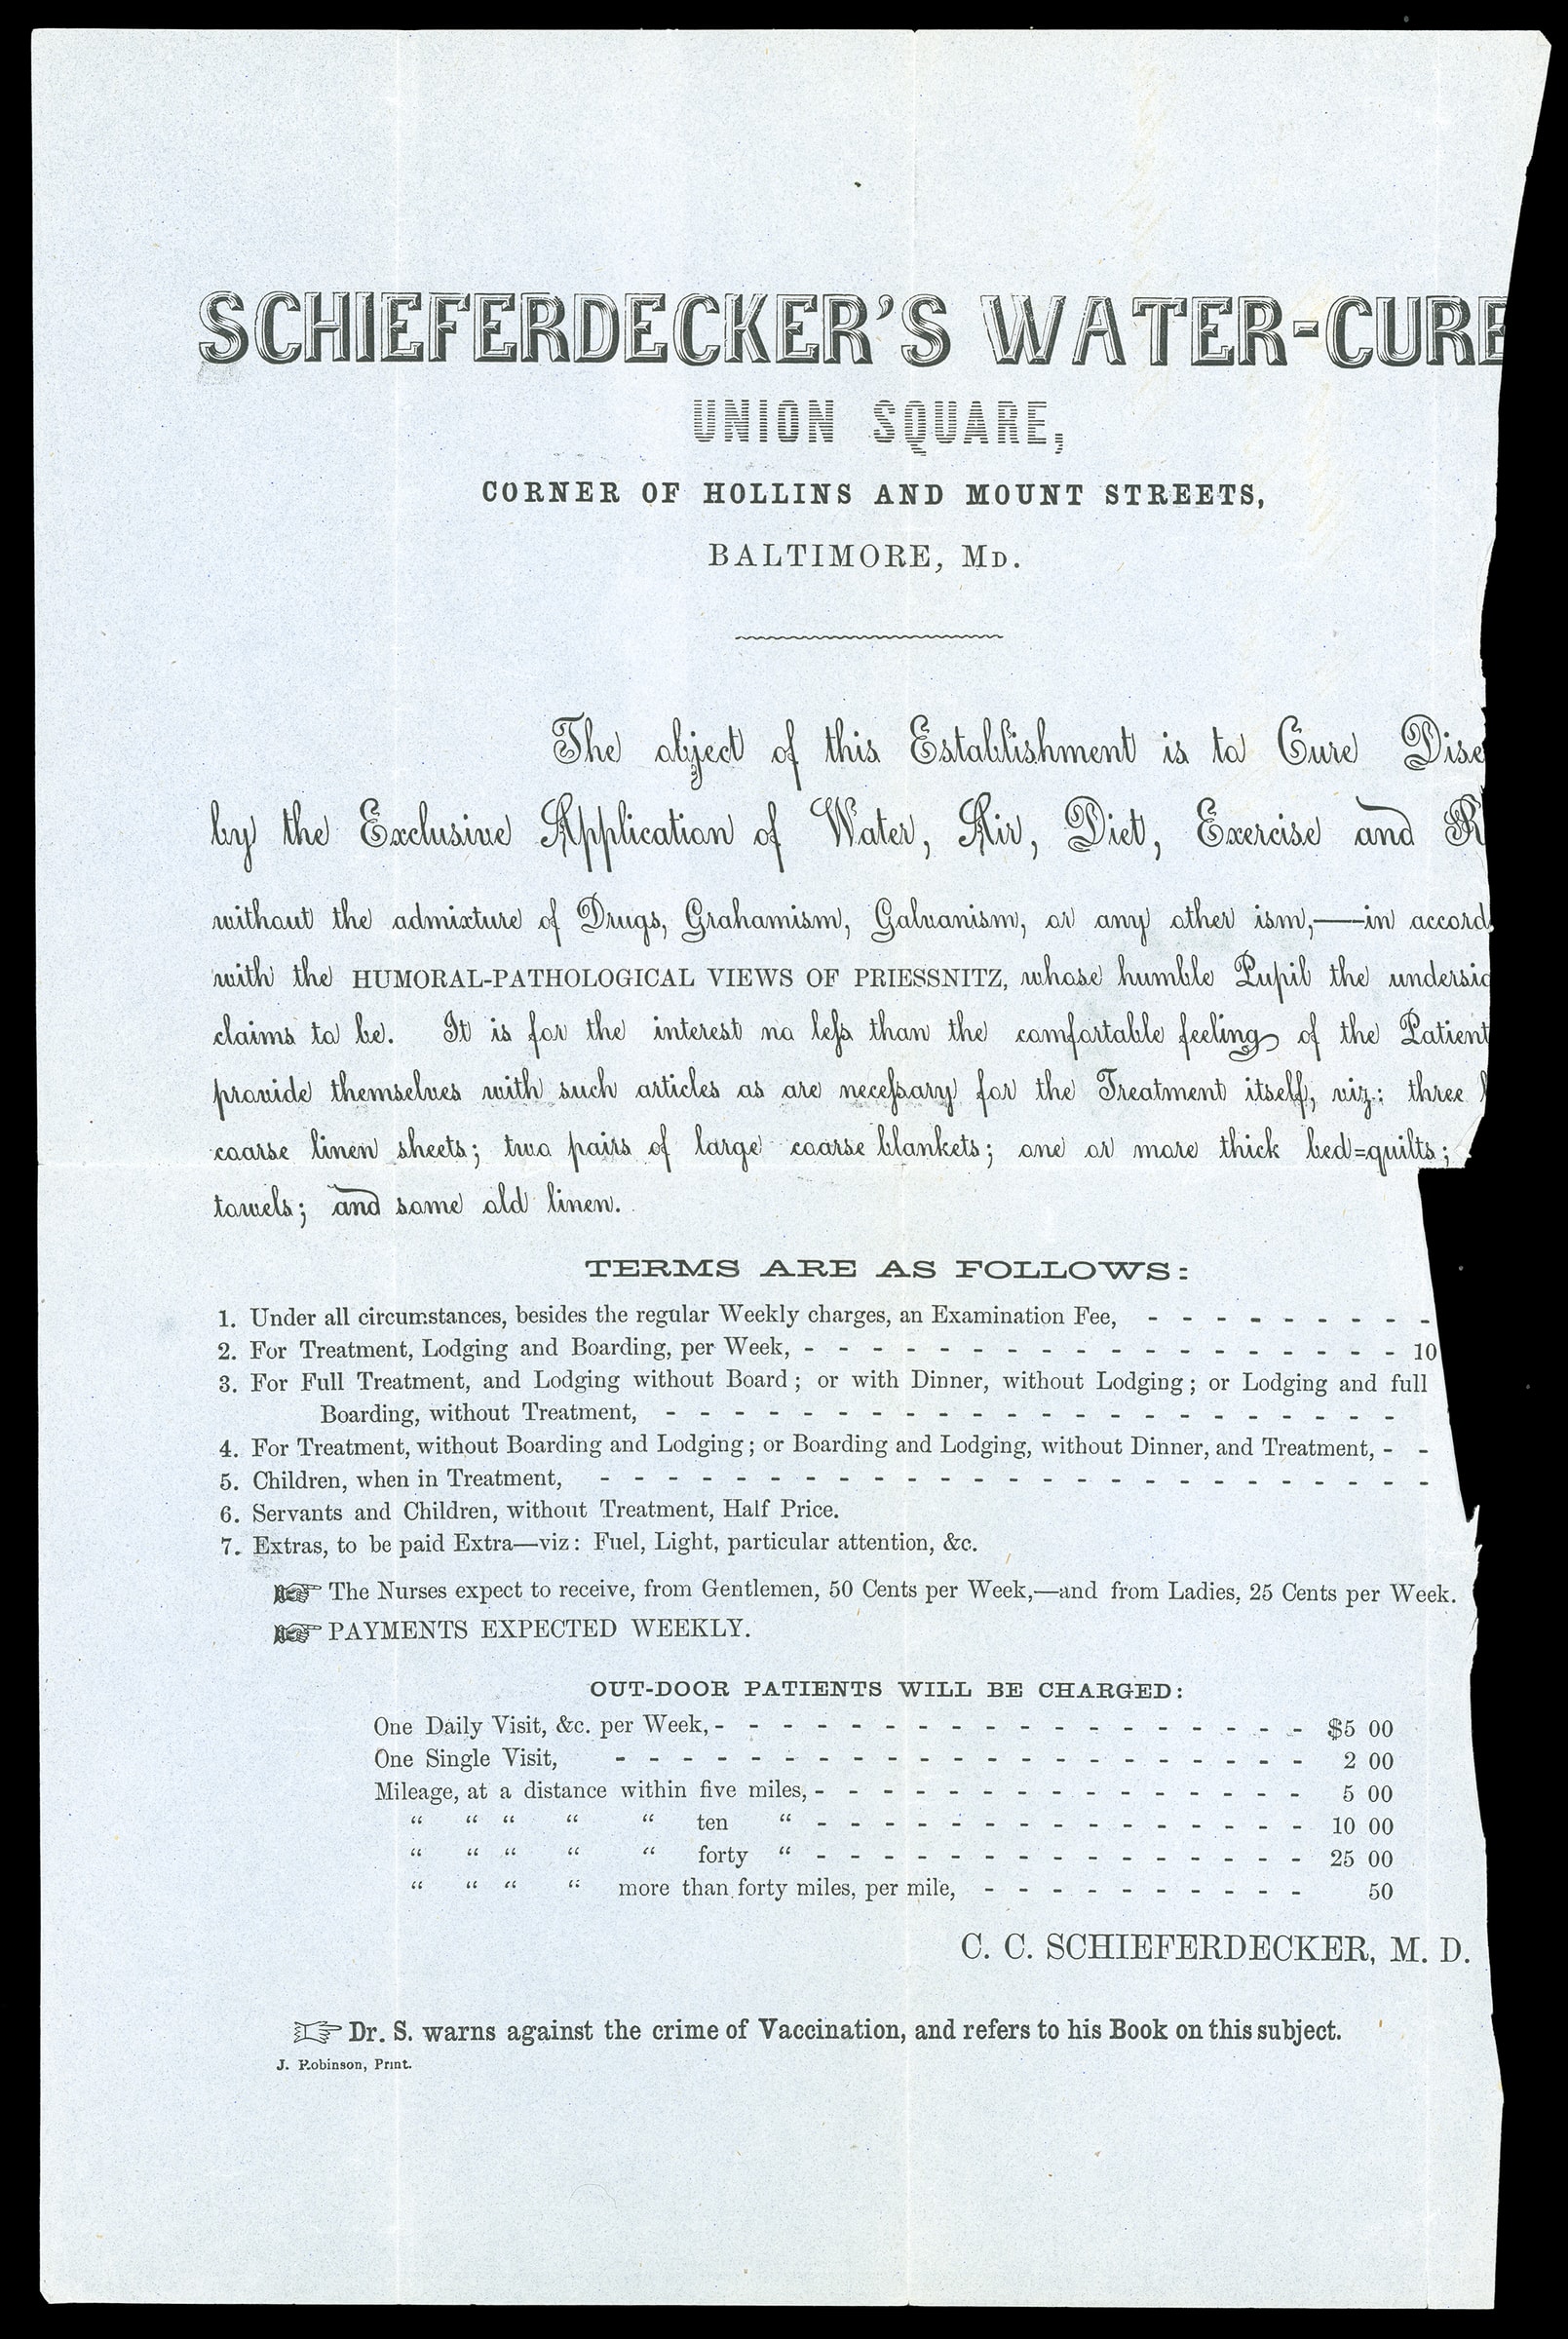 SCHIEFERDECKER'S WATER-CURE
UNION SQUARE,
CORNER OF HOLLINS AND MOUNT STREETS,
BALTIMORE, MD.
The object of this Establishment is to Cure Dise
by the Exclusive Application of Water, Air, Diet, Exercise and R
without the admixture of Drugs, Grahamism, Galvanism, or any other ism,—in accord
with the HUMORAL-PATHOLOGICAL VIEWS OF PRIESSNITZ, whose humble Pupil the undersig
claims to be. It is for the interest no less than the comfortable feeling of the Patient
provide themselves with such articles as are necessary for the Treatment itself, viz.: three
coarse linen sheets; two pairs of large coarse blankets; one or more thick bed=quilts;
towels; and some old linen.
TERMS ARE AS FOLLOWS:
1. Under all circumstances, besides the regular Weekly charges, an Examination Fee, - - - - - - - - -
2. For Treatment, Lodging and Boarding, per Week, - - - - - - - - - - - - - - - - - - 10
3. For Full Treatment, and Lodging without Board; or with Dinner, without Lodging; or Lodging and full
Boarding, without Treatment, - - - - - - - - - - - - - - - - - - - - - -
4. For Treatment, without Boarding and Lodging; or Boarding and Lodging, without Dinner, and Treatment, - -
5. Children, when in Treatment, - - - - - - - - - - - - - - - - - - - - - - - - -
6. Servants and Children, without Treatment, Half Price.
7. Extras, to be paid Extra—viz: Fuel, Light, particular attention, &c.
☞ The Nurses expect to receive, from Gentlemen, 50 Cents per Week,—and from Ladies, 25 Cents per Week.
☞ PAYMENTS EXPECTED WEEKLY.
OUT-DOOR PATIENTS WILL BE CHARGED:
One Daily Visit, &c. per Week, - - - - - - - - - - - - - - - - - - $5 00
One Single Visit, - - - - - - - - - - - - - - - - - - - - - 2 00
Mileage, at a distance within five miles, - - - - - - - - - - - - - - - 5 00
“ “ “ “ “ ten “ - - - - - - - - - - - - - - - 10 00
“ “ “ “ “ forty “ - - - - - - - - - - - - - - - 25 00
“ “ “ “ more than forty miles, per mile, - - - - - - - - - - 50
C. C. SCHIEFERDECKER, M. D.
☞ Dr. S. warns against the crime of Vaccination, and refers to his Book on this subject.
J. Robinson, Print.